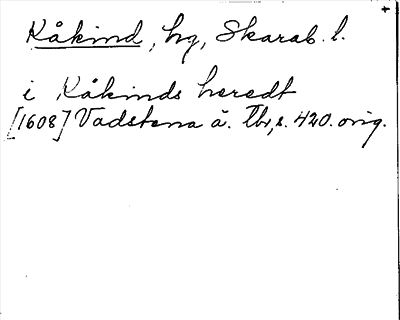 Kåkind, hg, Skarab. l.
i Kåkinds heredt
[1608] Vadstena ä. Tb, s. 420. orig.